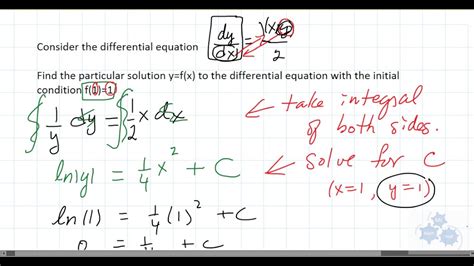 Consider the differential equation dy/dx = (xy)/2
Find the particular solution y=f(x) to the differential equation with the initial
condition f(1)=1.
∫ 1/y dy = ∫ 1/2 x dx
← take integral
of both sides.
ln|y| = 1/4 x² + C
← solve for C
(x=1, y=1)
ln(1) = 1/4 (1)² + C